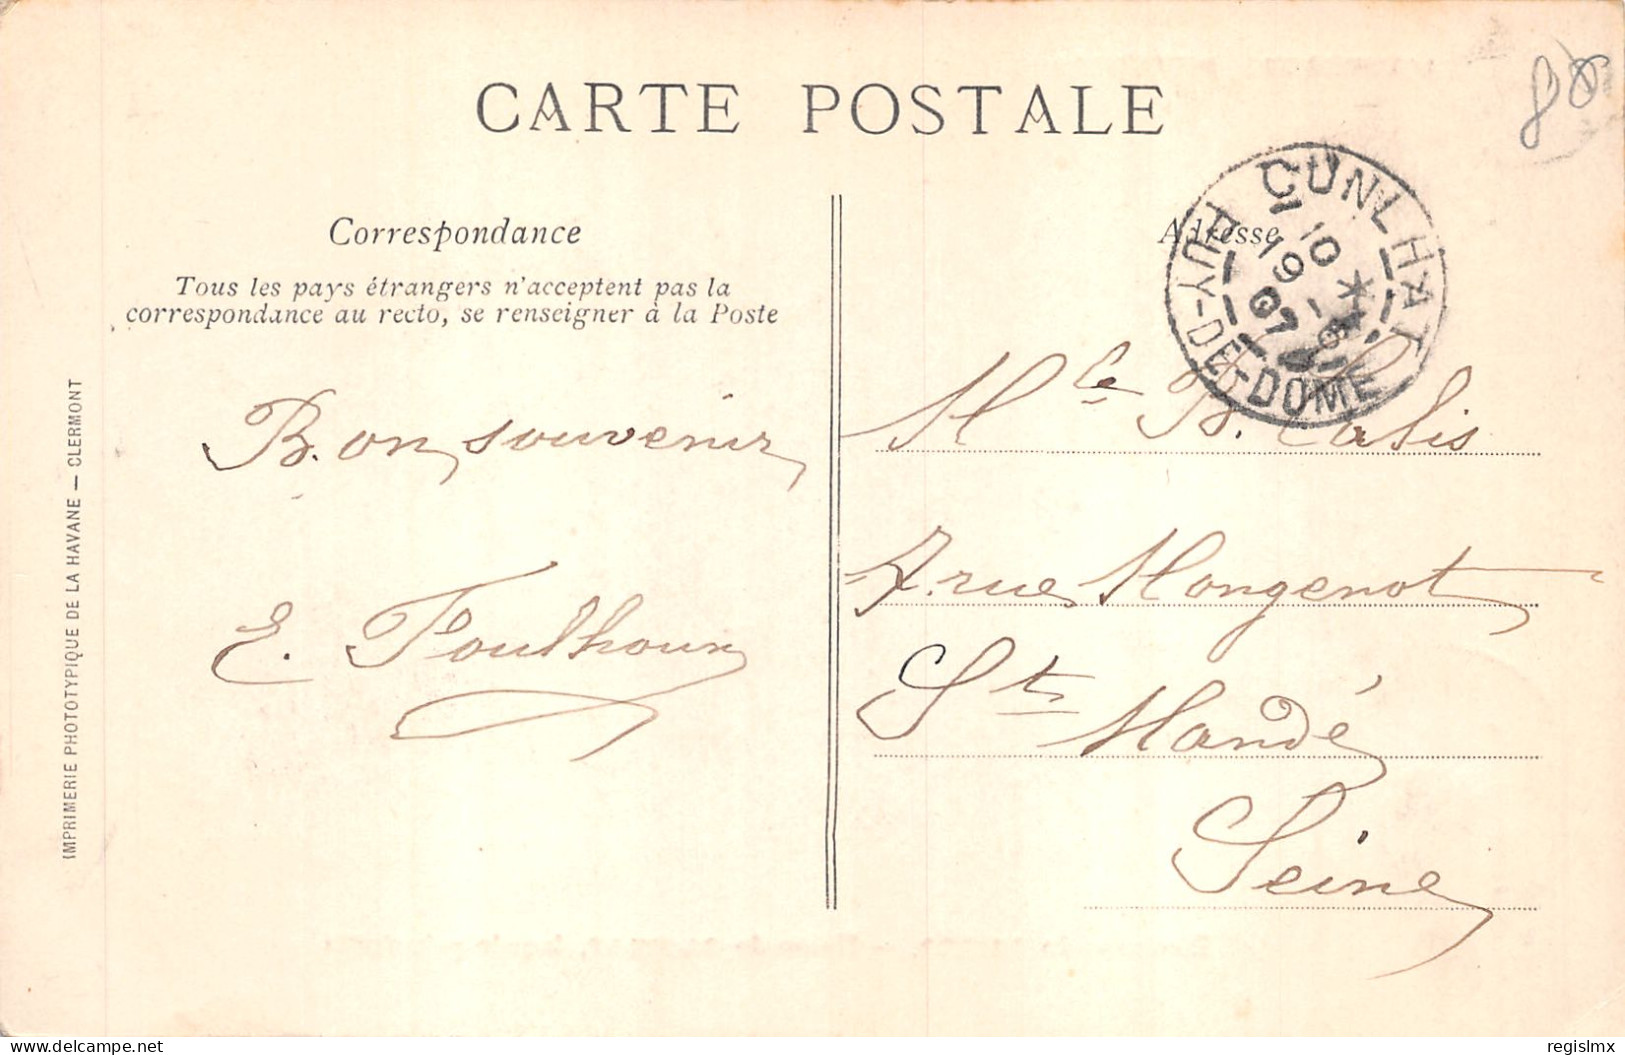 CARTE POSTALE
80
Correspondance
Tous les pays étrangers n'acceptent pas la
correspondance au recto, se renseigner à la Poste
B. on souvenir
E. Foulhoux
IMPRIMERIE PHOTOTYPIQUE DE LA HAVANE — CLERMONT
Adresse
CUNLHAT
PUY-DE-DOME
10
19 - 8
07
Mlle B.
7. rue Mongenot
St Mandé
Seine
delcampe.net
regislmx